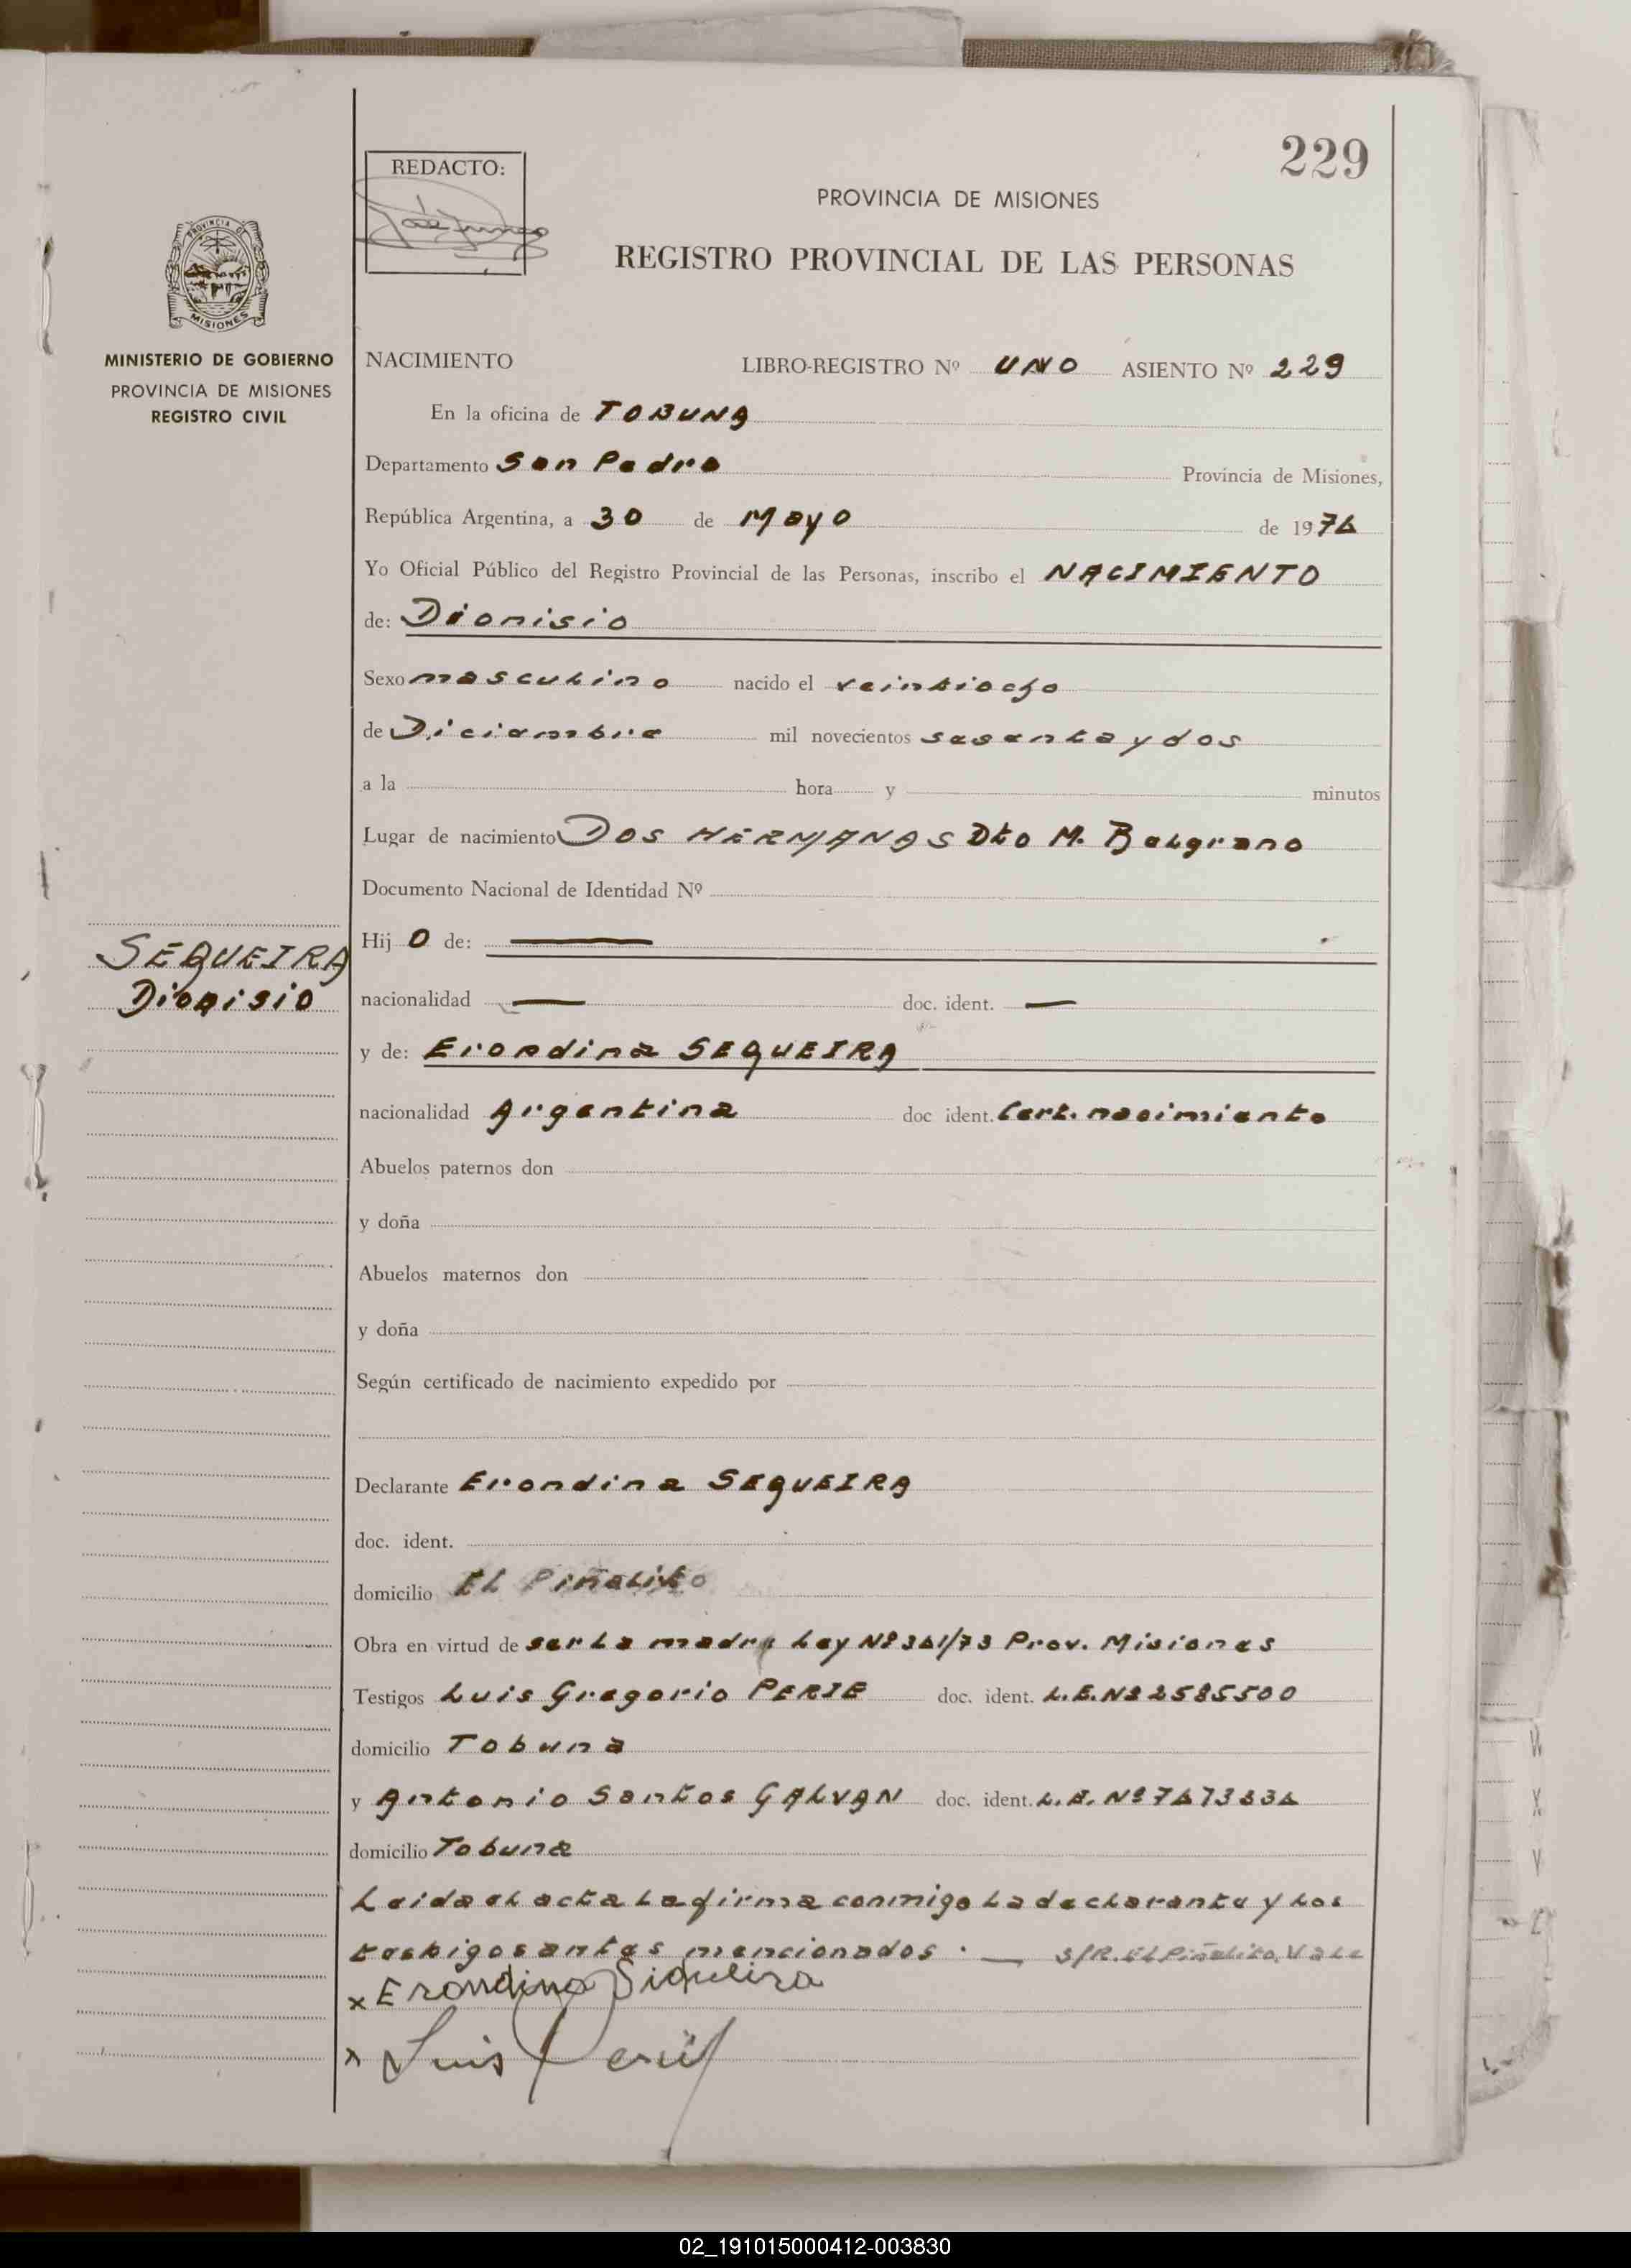 229
REDACTO:
PROVINCIA DE MISIONES
REGISTRO PROVINCIAL DE LAS PERSONAS
PROVINCIA DE
MISIONES
MINISTERIO DE GOBIERNO
PROVINCIA DE MISIONES
REGISTRO CIVIL
NACIMIENTO LIBRO-REGISTRO Nº UNO ASIENTO Nº 229
En la oficina de TOBUNA
Departamento San Pedro Provincia de Misiones,
República Argentina, a 30 de Mayo de 1974
Yo Oficial Público del Registro Provincial de las Personas, inscribo el NACIMIENTO
de: Dionisio
Sexo masculino nacido el veintiocho
de Diciembre mil novecientos sesenta y dos
a la hora y minutos
Lugar de nacimiento DOS HERMANAS Dto M. Belgrano
Documento Nacional de Identidad Nº
SEQUEIRA
Dionisio
Hij o de: —
nacionalidad — doc. ident. —
y de: Erondina SEQUEIRA
nacionalidad Argentina doc ident. Cert. nacimiento
Abuelos paternos don
y doña
Abuelos maternos don
y doña
Según certificado de nacimiento expedido por
Declarante Erondina SEQUEIRA
doc. ident.
domicilio El Piñalito
Obra en virtud de ser la madre Ley Nº 341/73 Prov. Misiones
Testigos Luis Gregorio PERIE doc. ident. L.E. Nº 2585500
domicilio Tobuna
y Antonio Santos GALVAN doc. ident. L.E. Nº 7473334
domicilio Tobuna
Leida el acta la firma conmigo la declarante y los
testigos antes mencionados. — S/R. El Piñalito. Vale
x Erondina Siqueira
x Luis Perié
02_191015000412-003830